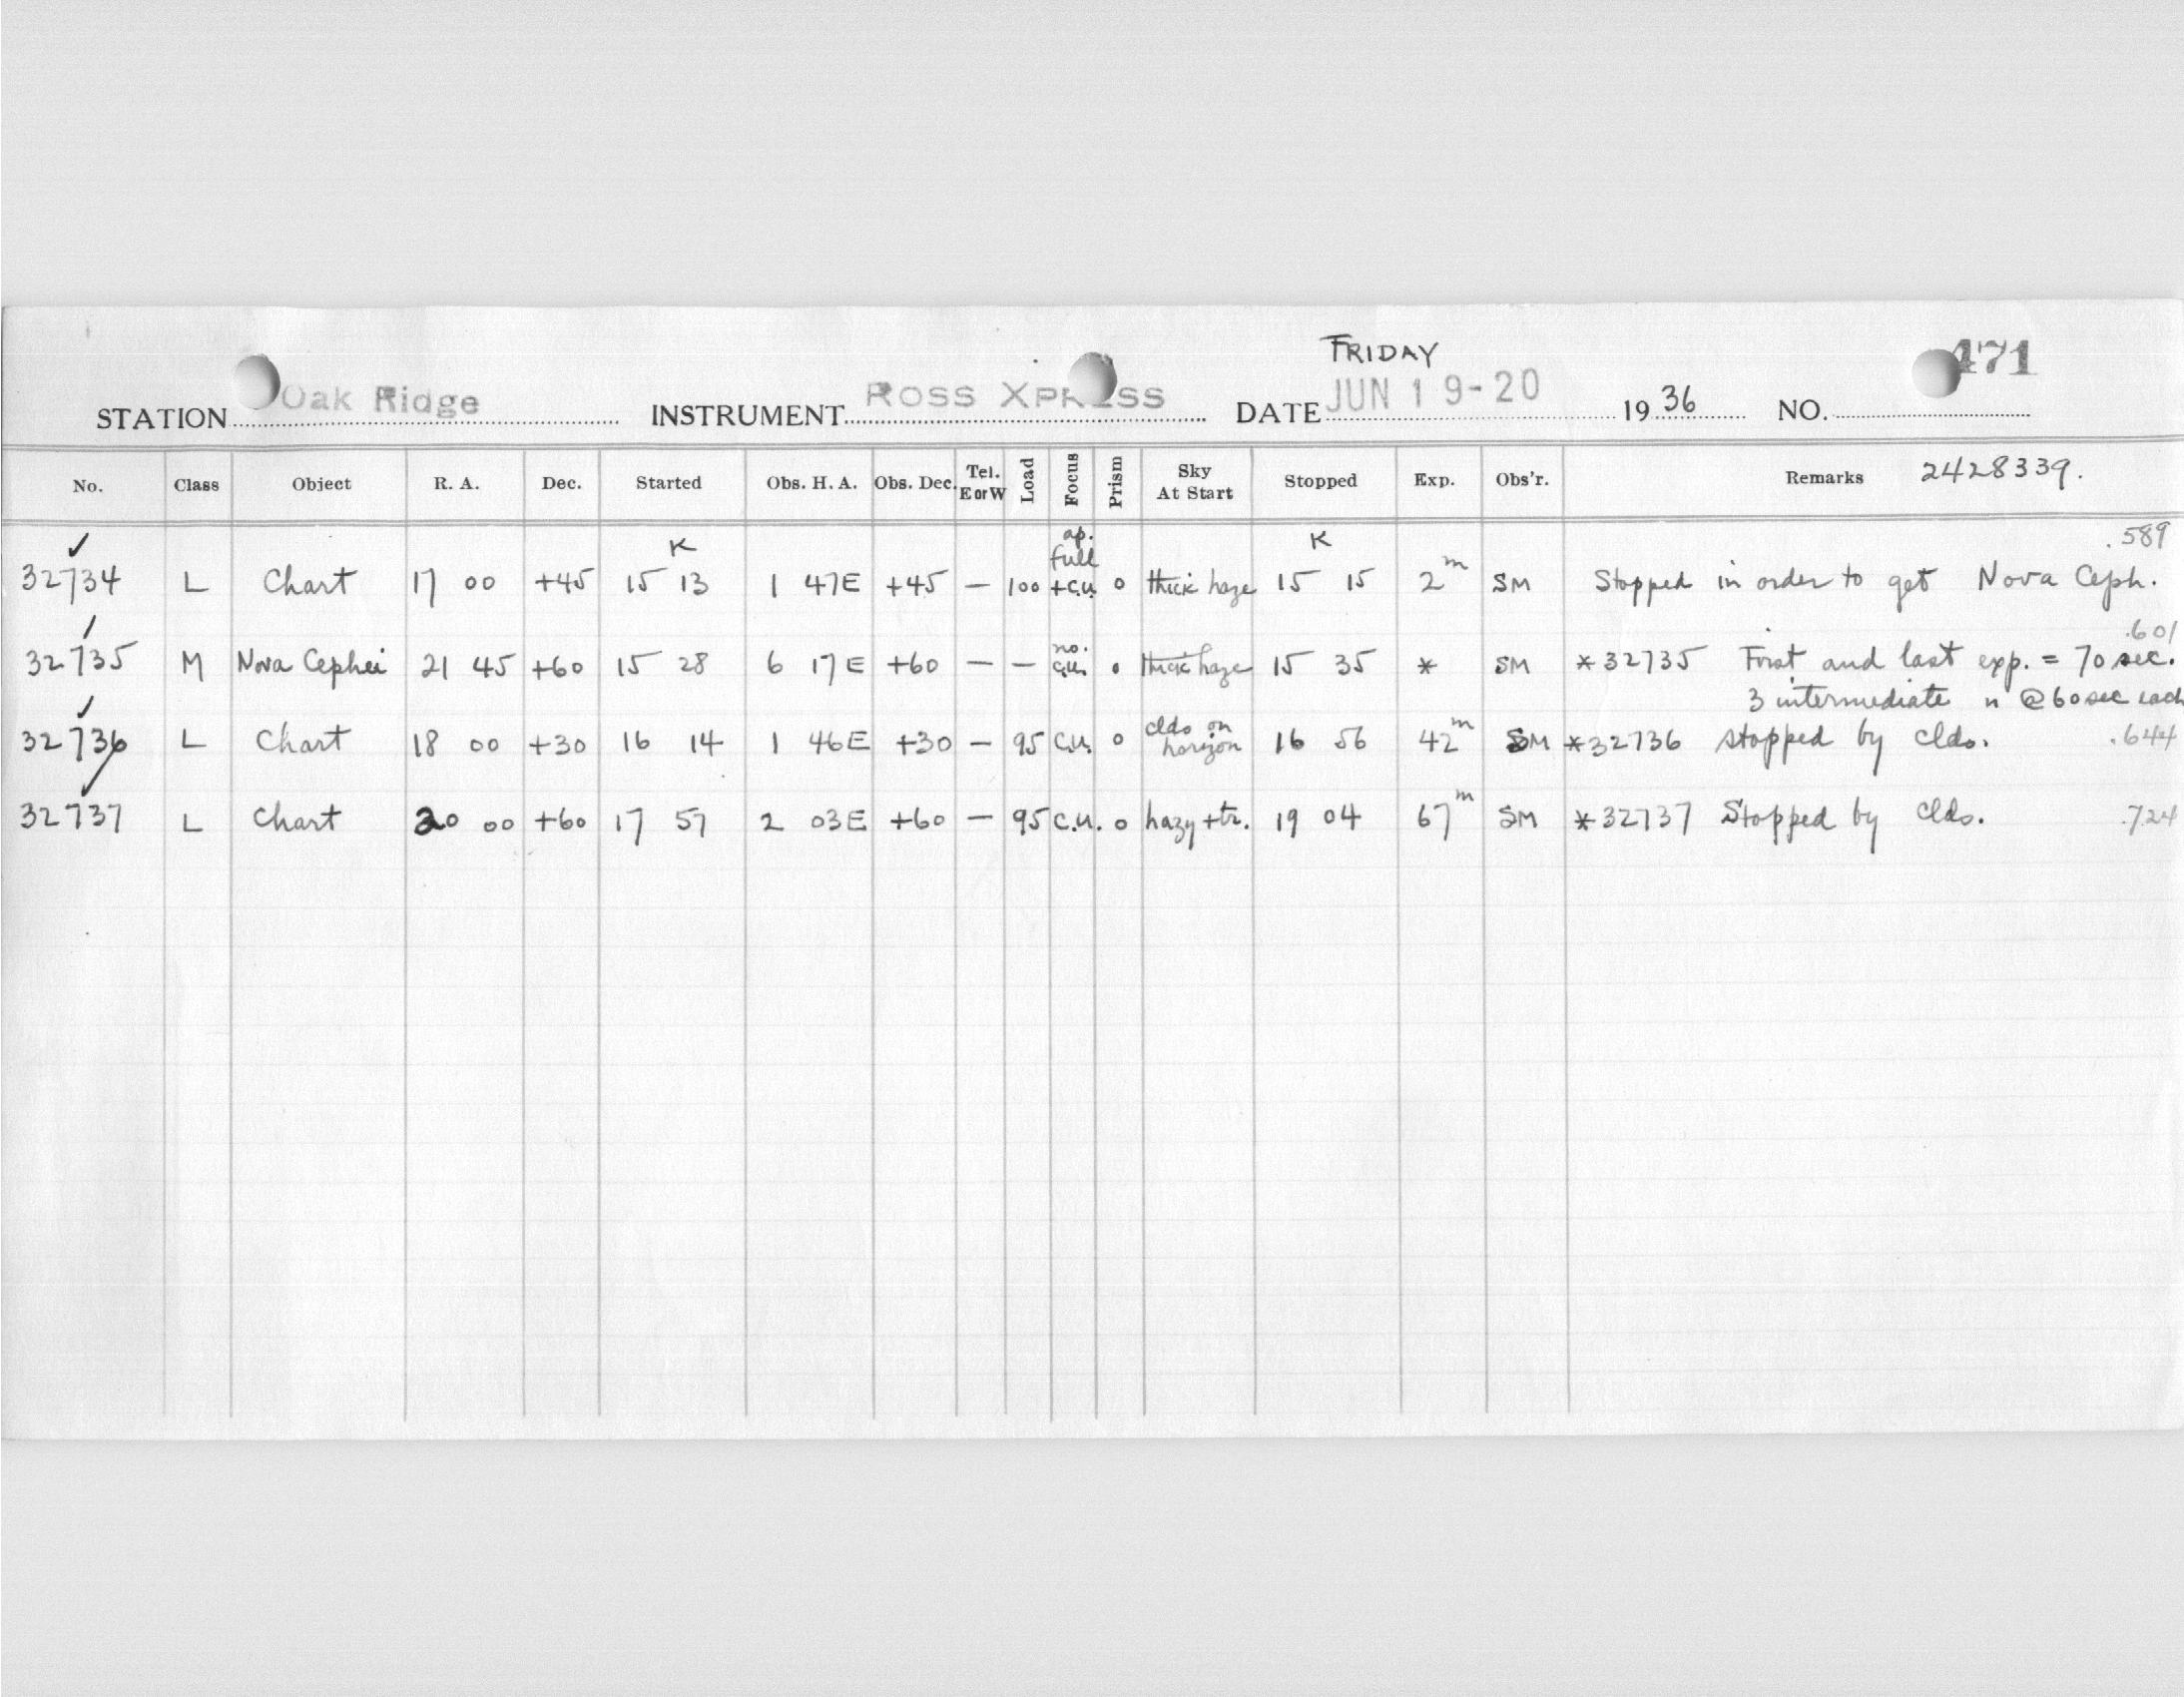 FRIDAY
STATION Oak Ridge INSTRUMENT Ross Xpress DATE JUN 19-20 1936 NO. 471
No. Class Object R. A. Dec. Started Obs. H. A. Obs. Dec. Tel. E or W Load Focus Prism Sky At Start Stopped Exp. Obs'r. Remarks 2428339.
K ap. full K .589
32734 L Chart 17 00 +45 15 13 1 47E +45 — 100 +c.u. 0 thick haze 15 15 2m SM Stopped in order to get Nova Ceph.
no. .601
32735 M Nova Cephei 21 45 +60 15 28 6 17E +60 — — c.u. 0 thick haze 15 35 * SM *32735 First and last exp. = 70 sec.
3 intermediate " @ 60 sec each
32736 L Chart 18 00 +30 16 14 1 46E +30 — 95 c.u. 0 clds on horizon 16 56 42m SM *32736 stopped by clds. .644
32737 L Chart 20 00 +60 17 57 2 03E +60 — 95 c.u. 0 hazy + tr. 19 04 67m SM *32737 Stopped by clds. .724